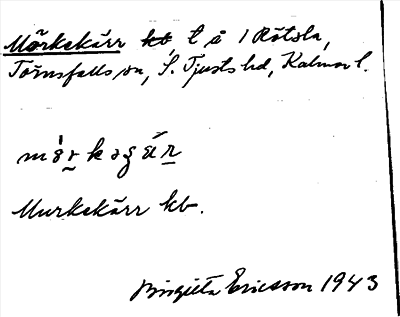 Mörkekärr kb, t å 1 Rötsla,
Törnsfalls sn, S. Tjusts hd, Kalmar l.
Murkekärr kb.
Birgitta Ericsson 1943